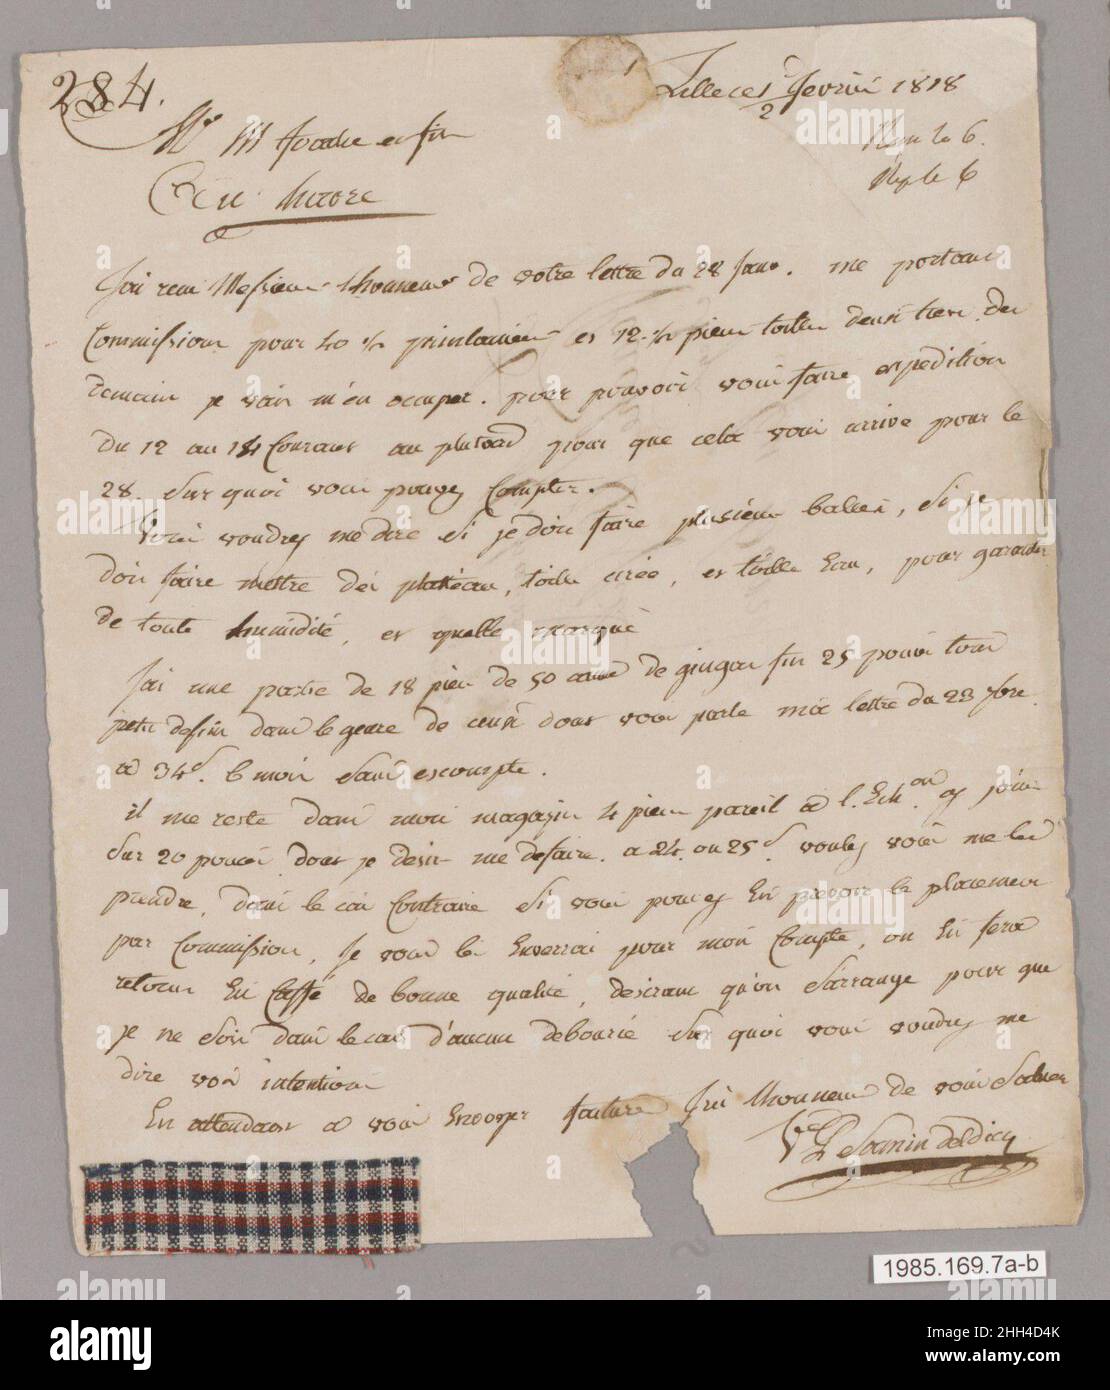 284.
Lille ce 1er fevrier 1818
2
Rep le 6.
Rep le 6
Mr et fils
J'ai recu Messieurs l'honneur de votre lettre du 28 Janv. me portant
Commission pour 40 p/s printanieres et 12 p/s pieces toiles Des
demain je vais m'en occuper. pour pouvoir vous faire expedition
Du 12 au 14 Courant au plutard pour que cela vous arrive pour le
28. Sur quoi vous pouvez Compter.
Vous voudrez me dire Si je dois faire plusieurs balles, Si je
dois faire mettre des platteau, toile cirée, et toille Eau, pour garantir
de toute humidité, et quelle marque
J'ai une partie de 18 pieces de 50 aune de gingas fin 25 pouces
petit dessin dans le genre de ceux dont vous parle ma lettre du 23 xbre
a 34s. 6 mois Sans escompte.
il me reste dans mon magazin 4 pieces pareil a l'Echon. cy joint
Sur 20 pouces dont je desire me defaire. a 24. ou 25s. voulez vous me les
prendre, dans le cas Contraire Si vous pouvez En prevoir le placement
par Commission, Je vous les Enverrai pour mon Compte, on En fera
retour En Caffé de bonne qualité, desirant qu'on S'arrange pour que
je ne Sois dans le cas d'aucun debourcé Sur quoi vous voudrez me
dire vos intentions
En attendant a vous Envoyer facture J'ai l'honneur de vous Saluer
1985.169.7a-b
alamy
Image ID: 2HH4D4K
www.alamy.com